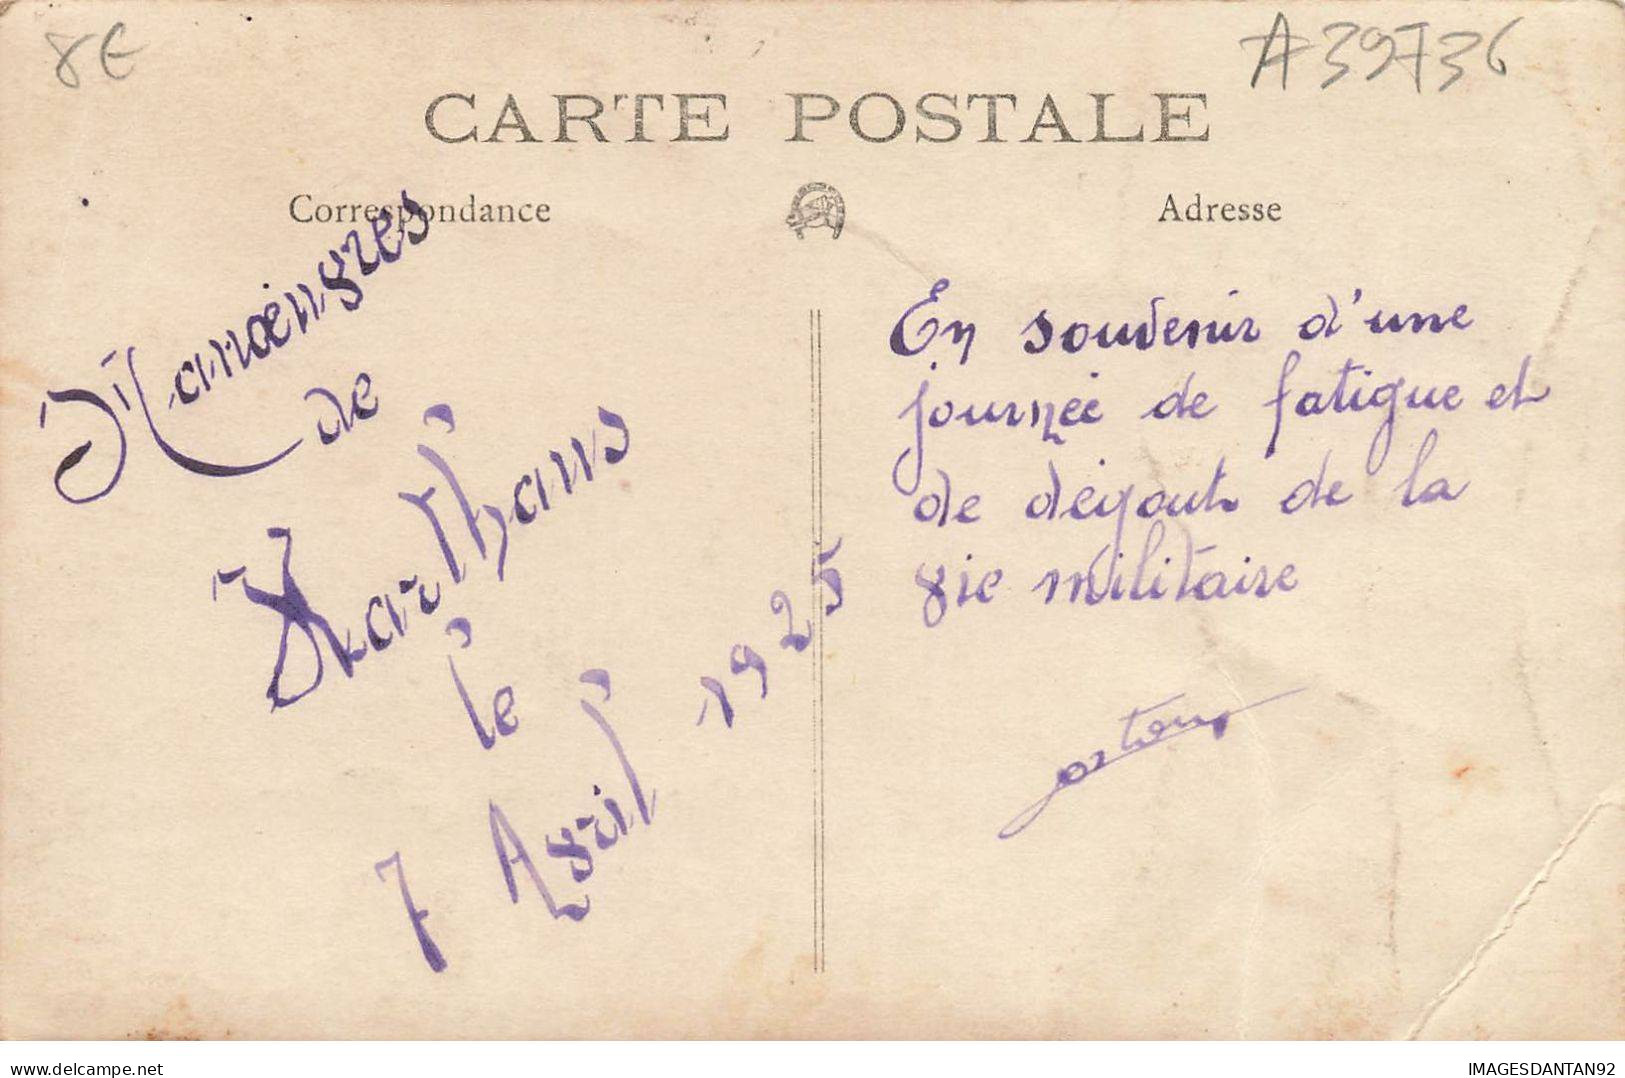 8€
A39736
CARTE POSTALE
Correspondance
Adresse
Manœuvres
de
le
7 Avril 1925
En souvenir d'une
journée de fatigue et
de degout de la
vie militaire
delcampe.net
IMAGESDANTAN92